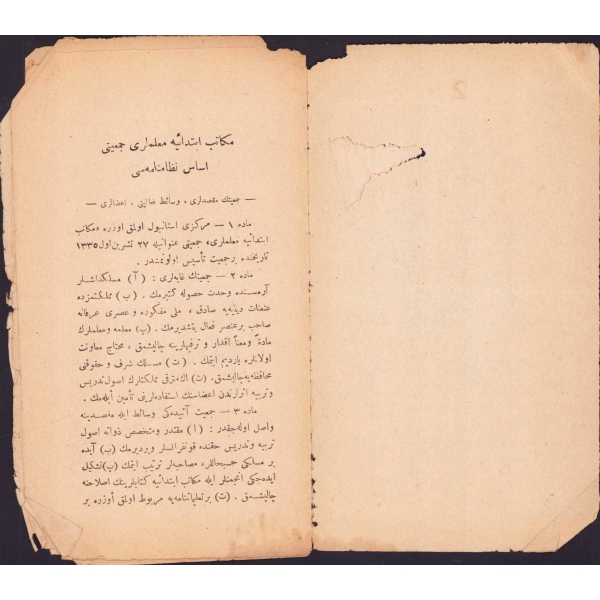 مكاتب ابتدائيه معلملرى جمعيتى
اساس نظامنامه‌سى
— جمعيتك مقصدلرى ، وسائط فعاليتى ، اعضالرى —
ماده ١ — مركزى استانبول اولمق اوزره «مكاتب
ابتدائيه معلملرى» جمعيتى عنوانيله ٢٧ تشرين اول ١٣٣٥
تاريخنده برجمعيت تأسيس اولونمشدر .
ماده ٢ — جمعيتك غايه‌لرى : (آ) مسلكداشلر
آره‌سنده وحدت حصوله كتيرمك . (ب) مملكتمزده
عنعنات دينيه‌يه صادق ، ملى مفكوره و عصرى عرفانه
صاحب برعنصر فعال يتشديرمك . (پ) معلمه ومعلملرك
مادةً ومعناً اقدار و ترفيهلرينه چاليشمق ، محتاج معاونت
اولانلره يارديم ايتمك . (ت) مسلك شرف و حقوقنى
محافظه‌يه چاليشمق. (ث) اك مترقى مملكتلرك اصول تدريس
وتربيه اثرلرندن اعضاسنك استفاده‌لرينى تأمين ايله‌مك .
ماده ٣ — جمعيت آتيده‌كى وسائط ايله مقصدينه
واصل اوله‌جقدر : (آ) مقتدر ومتخصص ذواته اصول
تربيه وتدريس حقنده قونفرانسلر ويرديرمك (ب) آيده
بر مسلكى حسبحاللر، مصاحبه‌لر ترتيب ايتمك (پ) تشكيل
ايده‌جكى انجمنلر ايله مكاتب ابتدائيه كتابلرينك اصلاحنه
چاليشمق . (ت) برتعليماتنامه‌يه مربوط اولمق اوزره بر